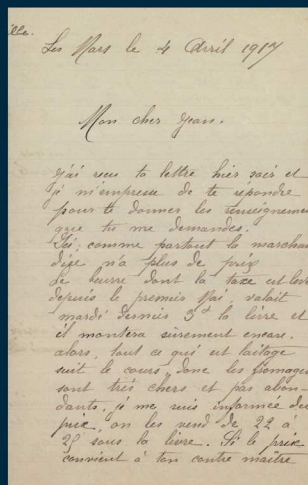 ille.
Les Mars le 4 Avril 1917
Mon cher Jean.
j'ai reçu ta lettre hier soir et
je m'empresse de te répondre
pour te donner les renseignemen
que tu me demandes.
Ici comme partout la marchan
dise n'a plus de prix
Le beurre dont la taxe est levé
depuis le premier valait
mardi dernier la livre et
il montera sûrement encore.
alors, tout ce qui est laitage
suit le cours, donc les fromages
sont très chers et pas abon-
dants, je me suis informée du
prix, on les vend de 22 à
25 sous la livre. Si le prix
convient à ton contre maître